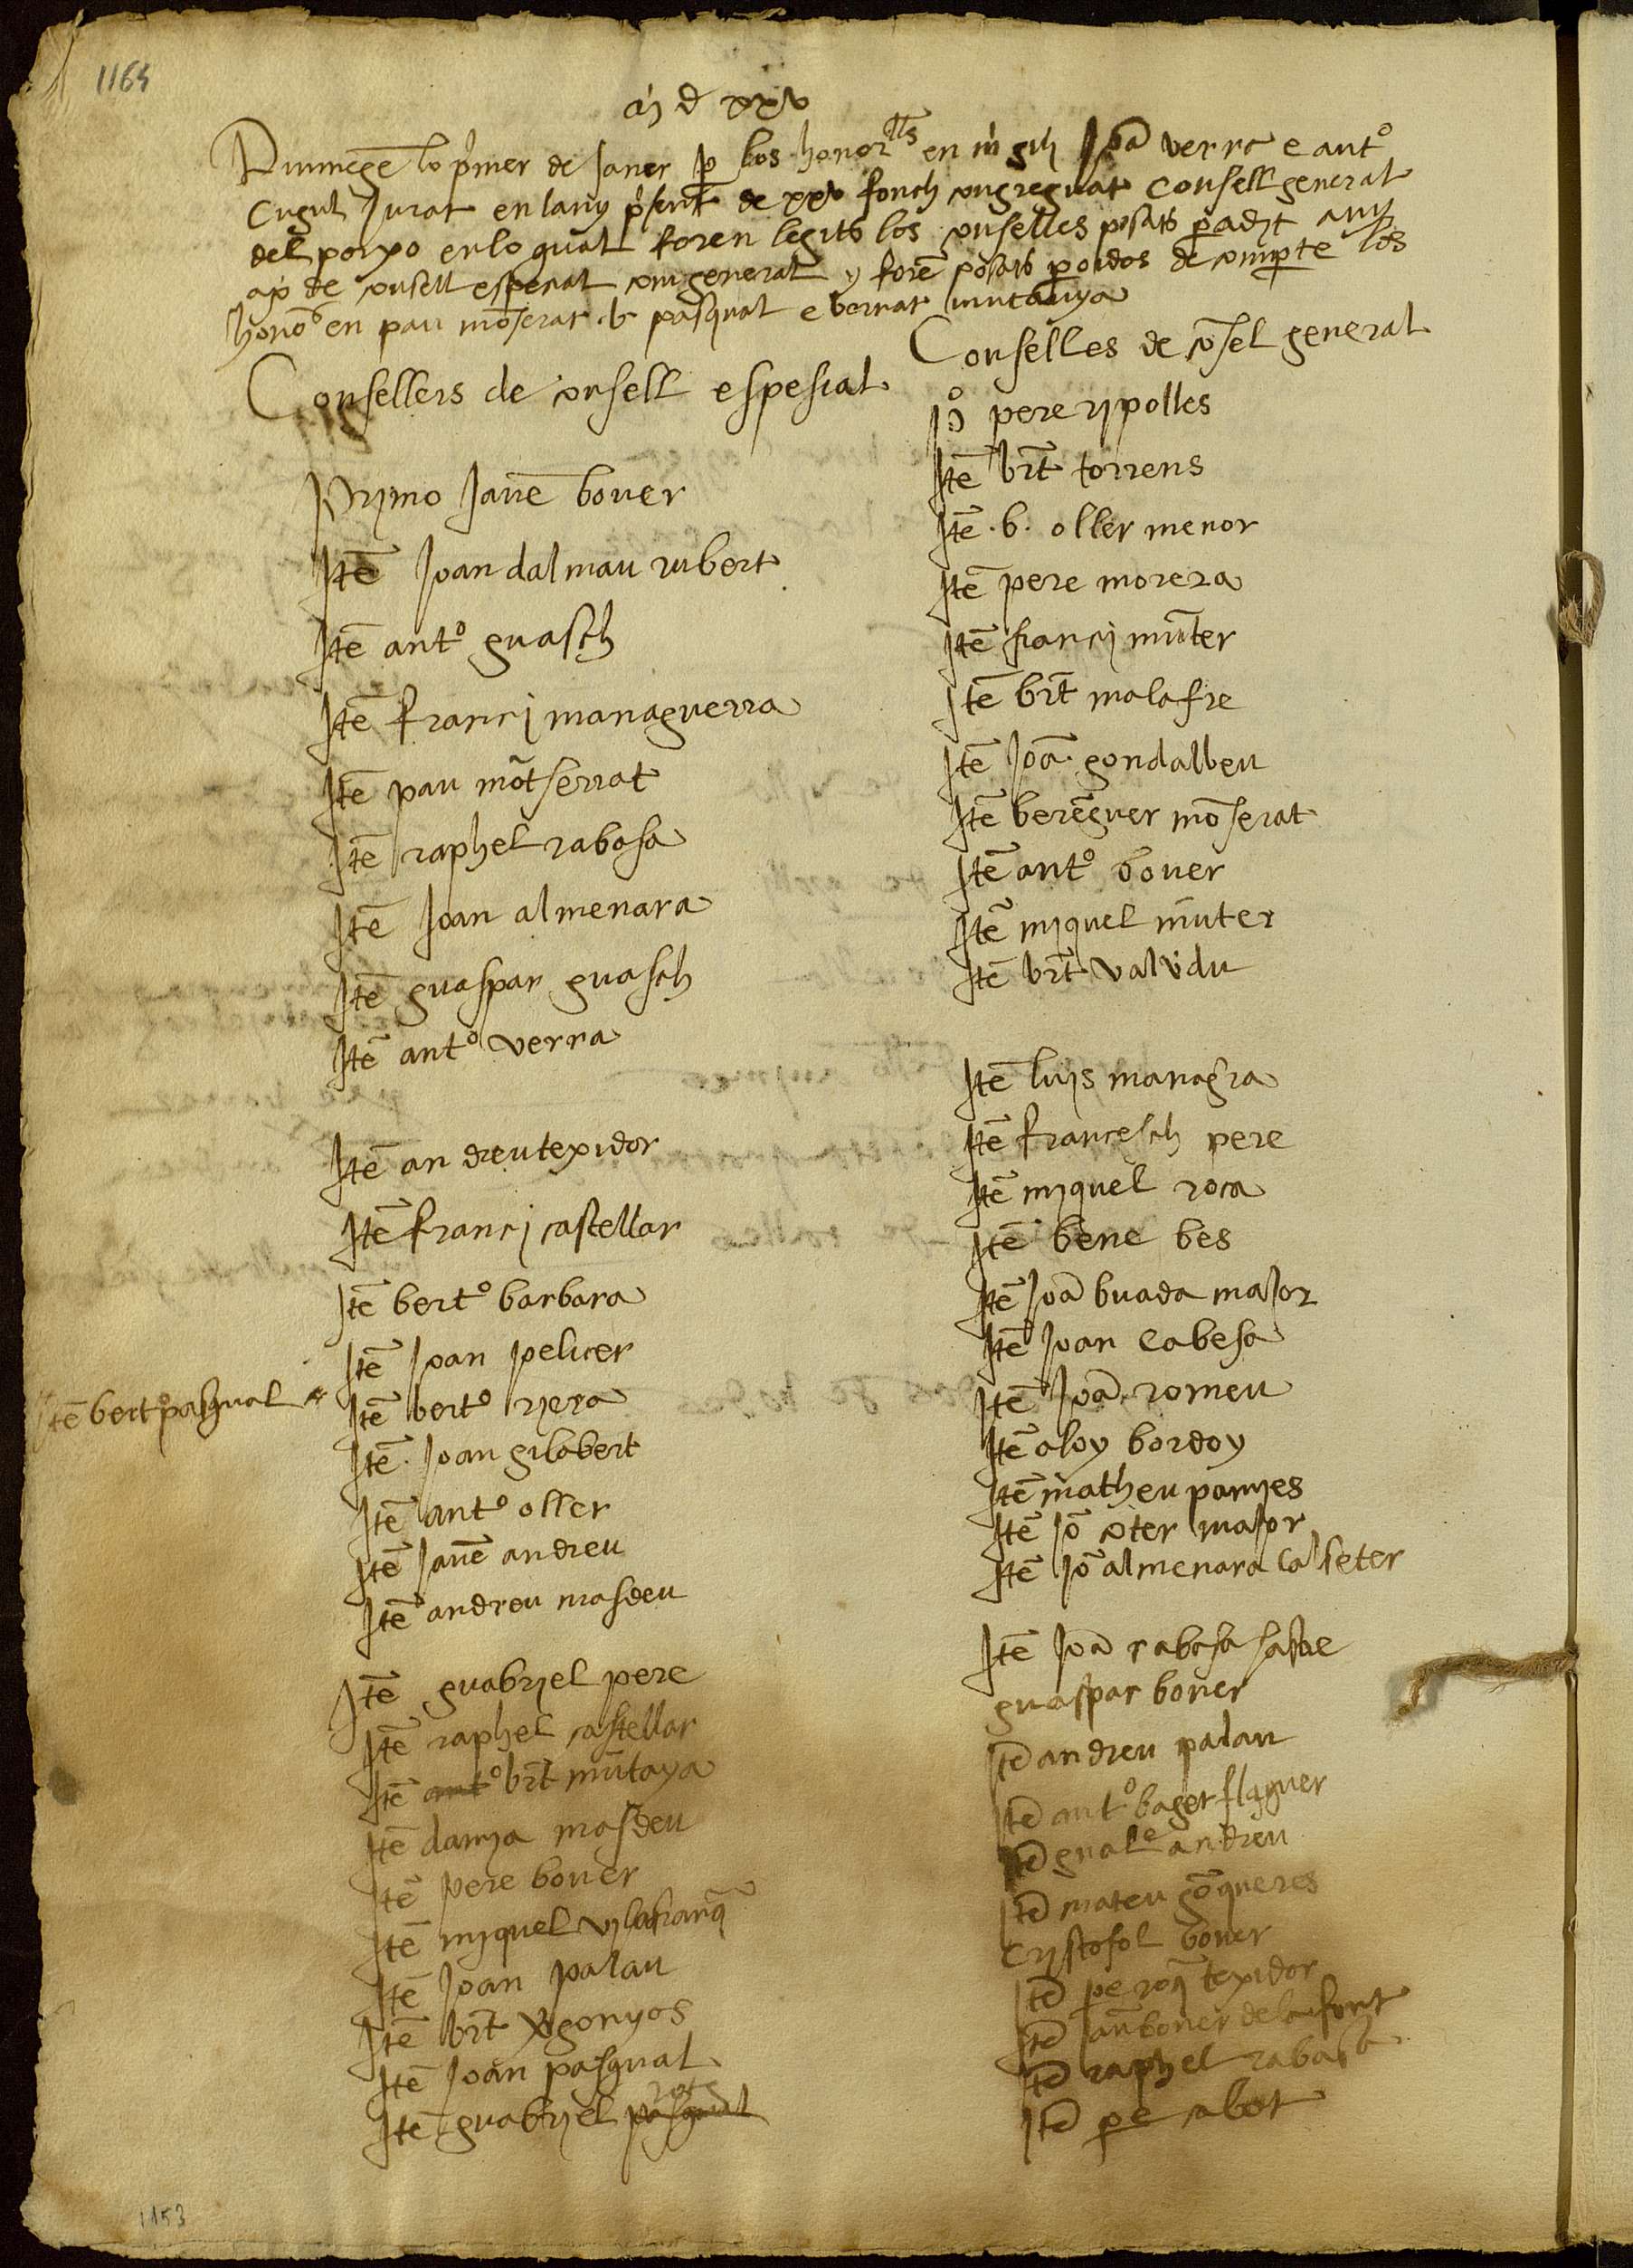 1164
añ d xxv
Diumēge lo p̄mer de Janer p̄ los honorlls en mj gil Joā verra e antº
Cugul Jurat en lany p̄sent de xxv fonch congreguat consell general
del porxo en lo qual foren legits los conselles posats p̄ a dit any
axi de consell espesial com general y forē posats p̄ oidos de compte los
honoº en pau mōserat .b. pasqual e bernat muntanya
Consellers de consell espesial
Prymo Jaūe bover
Itē Joan dalmau rubert
Itē antº guasch
Itē francj managuerra
Itē pau mōtserrat
Itē raphel rabasa
Itē Joan almenara
Itē guaspar guasch
Itē antº verra
Itē andreu texidor
Itē francj castellar
Itē bertº barbara
Itē Joan pelicer
Itē bertº pasqual
Itē bertº ryera
Itē Joan gilabert
Itē antº oller
Itē Jaūe andreu
Itē andreu masdeu
Itē guabryel pere
Itē raphel castellar
Itē antº br̄t mūtaya
Itē damya masdeu
Itē pere bover
Itē myquel vilafranq̄
Itē Joan palau
Itē br̄t gonyos
Itē Joan pasqual
Itē guabryel pasqual
Conselles de cōsel general
pº pere rypolles
Itē br̄t torrens
Itē .b. oller menor
Itē pere morera
Itē francj mūter
Itē br̄t malafre
Itē Joā gondalbeu
Itē berēguer mōserat
Itē antº bover
Itē myquel mūter
Itē br̄t valvdu
Itē luys managra
Itē francesch pere
Itē myquel roca
Itē bene bes
Itē Joā buada maJor
Itē Joan cabesa
Itē Joā romeu
Itē aloy bordoy
Itē matheu pamyes
Itē Jō oter maJor
Itē Jō almenara calseter
Itē Joā rabasa sastre
guaspar bover
Itē andreu palau
Itē antº bager flaquer
Itē andreu
Itē mateu gōqueres
Crystofol bover
Itē texidor
Itē Jaū bover de la font
Itē raphel rabasa
Itē pe cabot
1153